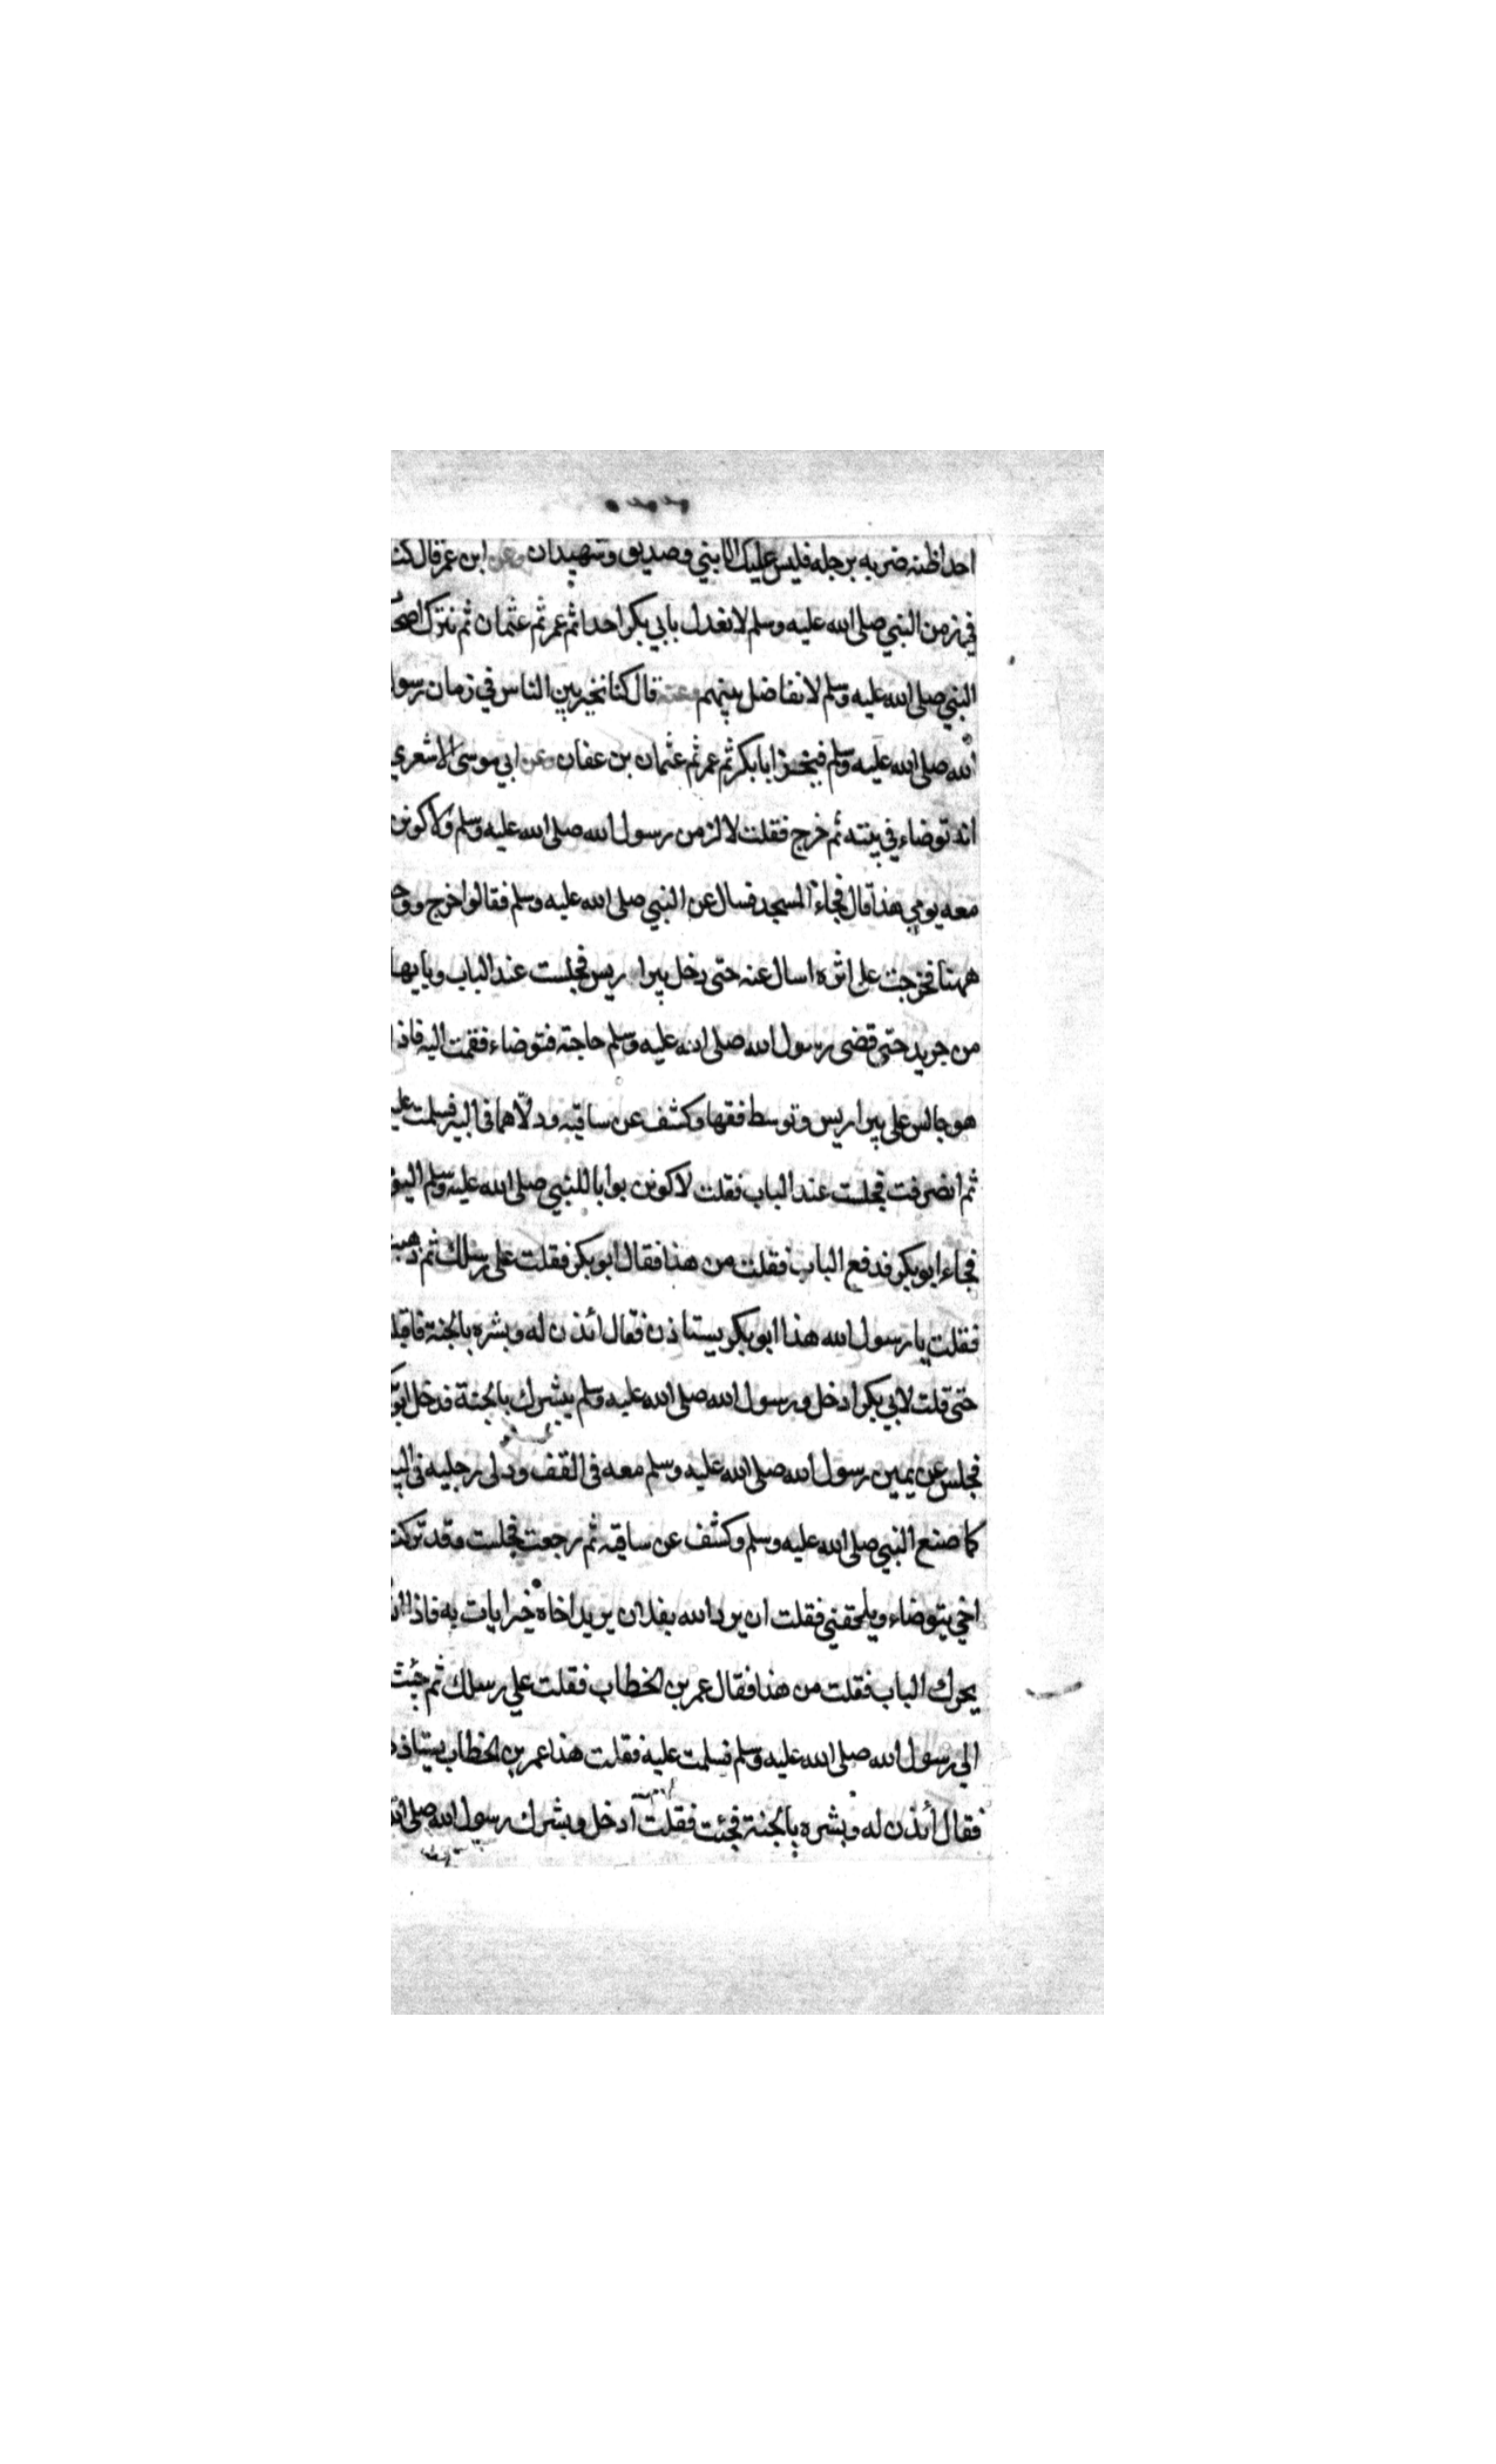 احدا ظنه ضربه برجله فليس عليك الا نبي وصديق وشهيدان وعن ابن عمر قال كنا
في زمن النبي صلى الله عليه وسلم لا نعدل بابي بكر احدا ثم عمر ثم عثمان ثم نترك اصحا
النبي صلى الله عليه وسلم لا نفاضل بينهم وعنه قال كنا نخير بين الناس في زمان رسول
الله صلى الله عليه وسلم فنخير ابا بكر ثم عمر ثم عثمان بن عفان وعن ابي موسى الاشعري
انه توضاء في بيته ثم خرج فقلت لالزمن رسول الله صلى الله عليه وسلم ولاكونن
معه يومي هذا قال فجاء المسجد فسال عن النبي صلى الله عليه وسلم فقالوا خرج ووجه
ههنا فخرجت على اثره اسال عنه حتى دخل بيرا ريس فجلست عند الباب وبابها
من جريد حتى قضى رسول الله صلى الله عليه وسلم حاجته فتوضاء فقمت اليه فاذا
هو جالس على بير اريس وتوسط قفها وكشف عن ساقيه ودلاهما في البير فسلمت عليه
ثم انصرفت فجلست عند الباب فقلت لاكونن بوابا للنبي صلى الله عليه وسلم اليوم
فجاء ابو بكر فدفع الباب فقلت من هذا فقال ابو بكر فقلت على رسلك ثم ذهبت
فقلت يا رسول الله هذا ابو بكر يستاذن فقال ائذن له وبشره بالجنة فاقبلت
حتى قلت لابي بكر ادخل ورسول الله صلى الله عليه وسلم يبشرك بالجنة فدخل ابو بكر
فجلس عن يمين رسول الله صلى الله عليه وسلم معه في القف ودلى رجليه في البير
كما صنع النبي صلى الله عليه وسلم وكشف عن ساقيه ثم رجعت فجلست وقد تركت
اخي يتوضاء ويلحقني فقلت ان يرد الله بفلان يريد اخاه خيرا يات به فاذا انسان
يحرك الباب فقلت من هذا فقال عمر بن الخطاب فقلت على رسلك ثم جئت
الى رسول الله صلى الله عليه وسلم فسلمت عليه فقلت هذا عمر بن الخطاب يستاذن
فقال ائذن له وبشره بالجنة فجئت فقلت ادخل وبشرك رسول الله صلى الله